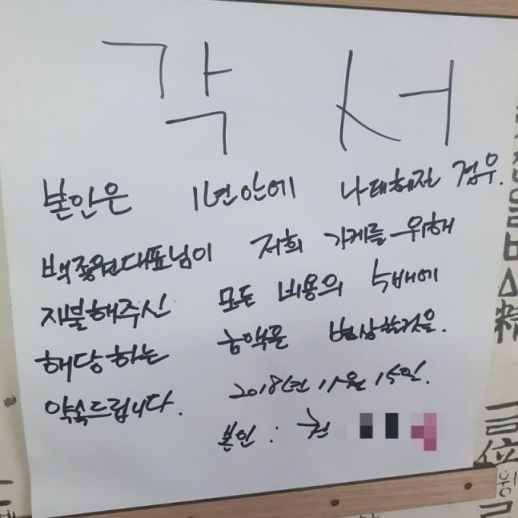 각 서
본인은 1년안에 나태해진 경우.
백종원대표님이 저희 가게를 위해
지불해주신 모든 비용의 5배에
해당하는 금액을 보상할것을.
약속드립니다. 2018년 11월 15일.
본인 : 권